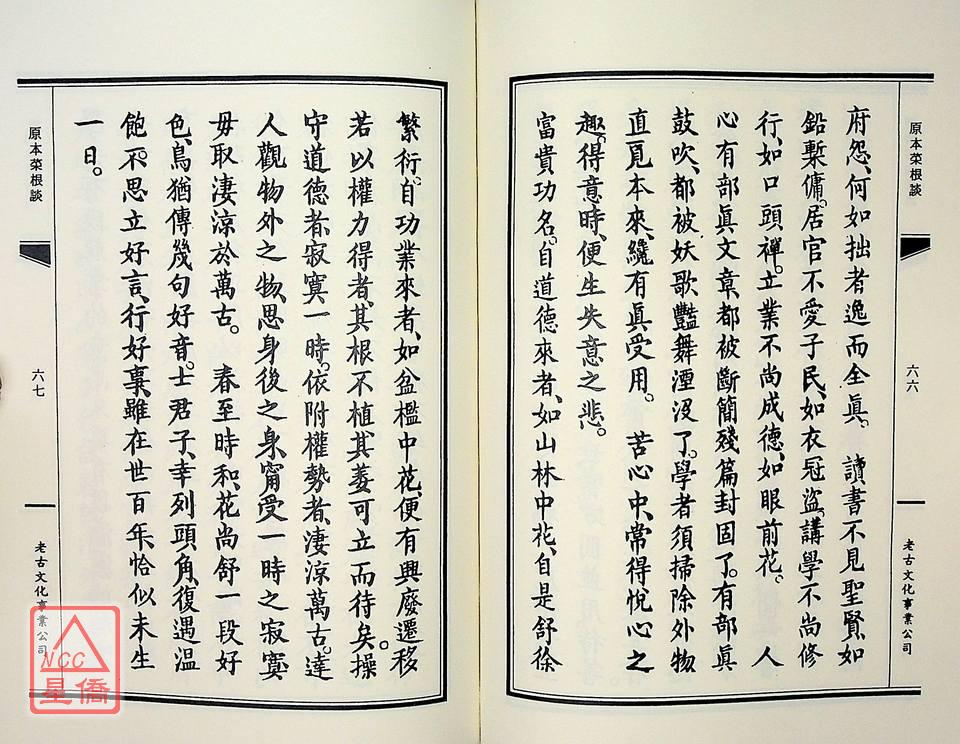 原本菜根談
六六
老古文化事業公司
府怨、何如拙者逸而全眞。　讀書不見聖賢、如
鉛槧傭。居官不愛子民、如衣冠盜。講學不尚修
行、如口頭禪。立業不尚成德、如眼前花。　人
心有部眞文章、都被斷簡殘篇封固了。有部眞
鼓吹、都被妖歌豔舞湮沒了。學者須掃除外物
直覓本來、纔有眞受用。　苦心中、常得悅心之
趣。得意時、便生失意之悲。
富貴功名。自道德來者、如山林中花、自是舒徐
繁衍。自功業來者、如盆檻中花、便有興廢遷移
若以權力得者、其根不植、其萎可立而待矣。操
守道德者、寂寞一時。依附權勢者、淒涼萬古。達
人觀物外之物、思身後之身、甯受一時之寂寞
毋取淒涼於萬古。　春至時和、花尚舒一段好
色、鳥猶傳幾句好音。士君子、幸列頭角、復遇溫
飽。不思立好言、行好事、雖在世百年、恰似未生
一日。
原本菜根談
六七
老古文化事業公司
NCC
星僑